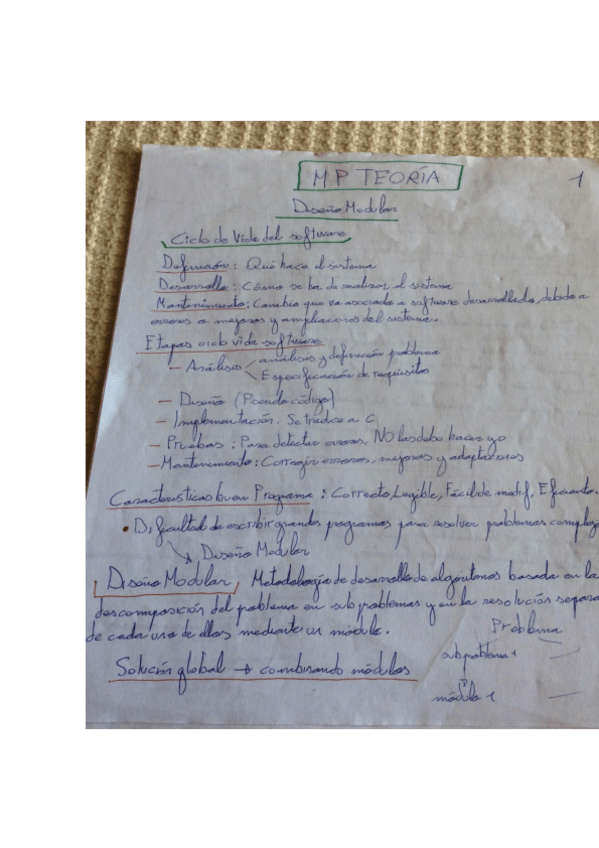 MP TEORÍA 1
Diseño Modular
Ciclo de Vida del software
Definición: Qué hace el sistema
Desarrollo: Cómo se ha de realizar el sistema
Mantenimiento: Cambio que va asociado a software desarrollado, debido a
errores o mejoras y ampliaciones del sistema.
Etapas ciclo vida software
— Análisis < análisis y definición problema
Especificación de requisitos
— Diseño (Pseudocódigo)
— Implementación. Se traduce a C
— Pruebas: Para detectar errores, NO las debo hacer yo
— Mantenimiento: Corregir errores, mejoras y adaptaciones
Características buen Programa: Correcto, Legible, Fácil de modif, Eficiente.
• Dificultad de escribir grandes programas para resolver problemas complej
↘ Diseño Modular
Diseño Modular, Metodología de desarrollo de algoritmos basada en la
descomposición del problema en subproblemas y en la resolución separa
de cada uno de ellos mediante un módulo.
Problema
subproblema 1
Solución global → combinando módulos
módulo 1